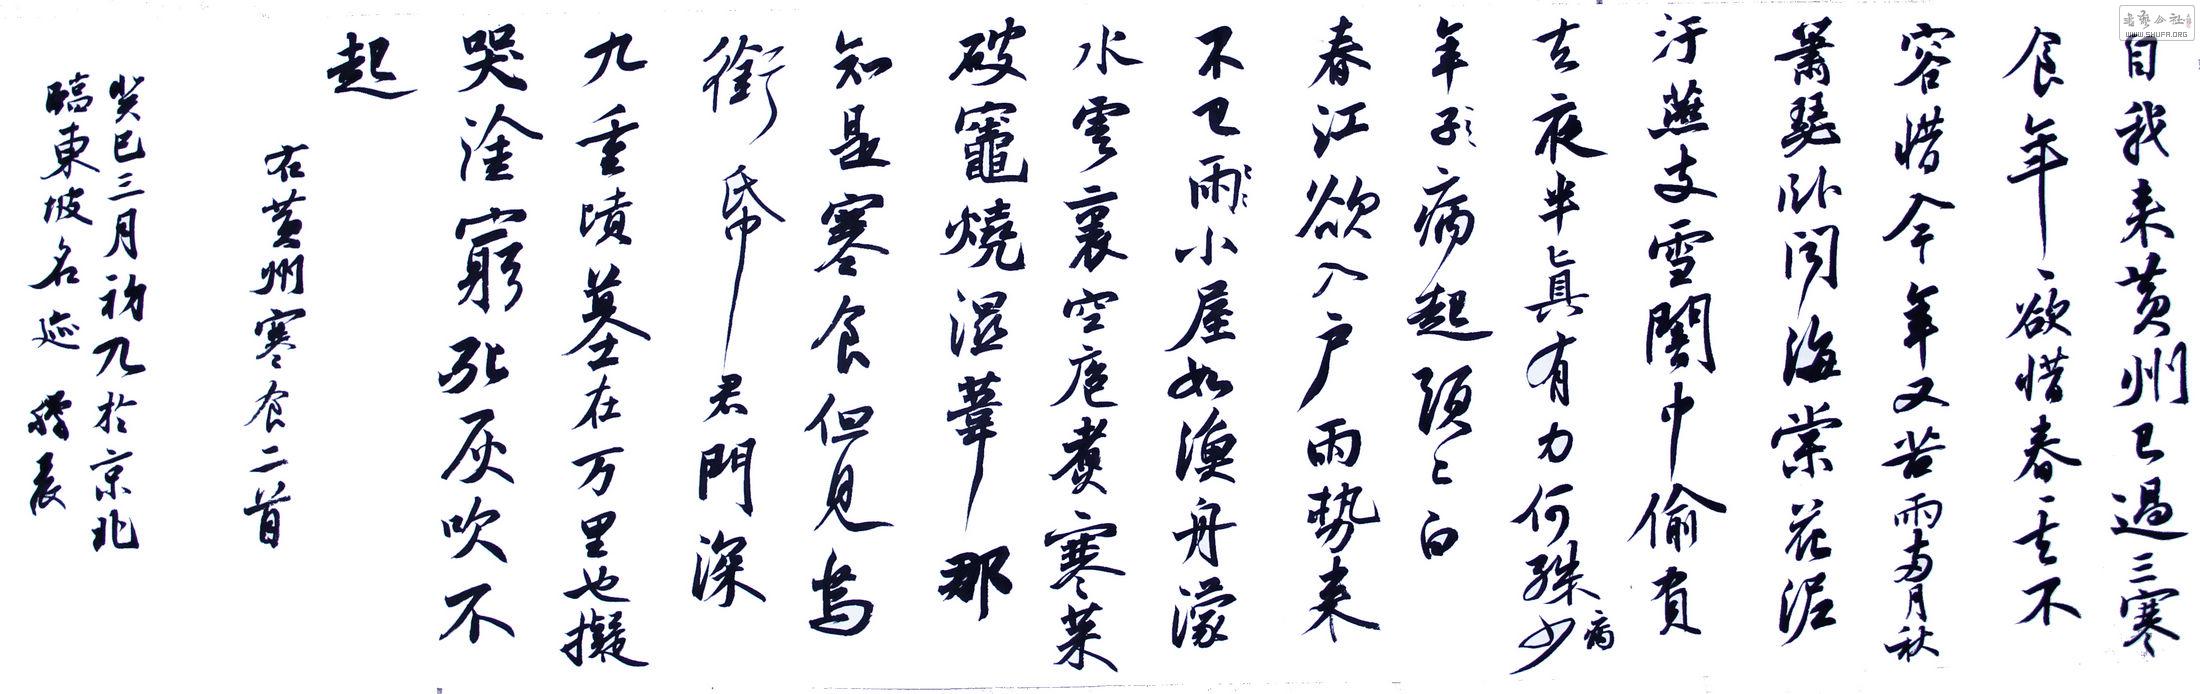 自我来黄州已過三寒
食年年欲惜春春去不
容惜今年又苦雨兩月秋
蕭瑟卧聞海棠花泥
汙燕支雪闇中偷負
去夜半真有力何殊少病
年子病起頭已白
春江欲入户雨勢来
不已雨小屋如漁舟濛
水雲裏空庖煮寒菜
破竈燒濕葦那
知是寒食但見烏
銜帋君門深
九重墳墓在万里也擬
哭塗窮死灰吹不
起
右黄州寒食二首
癸巳三月初九於京兆
臨東坡名迹
书艺公社
WWW.SHUFA.ORG